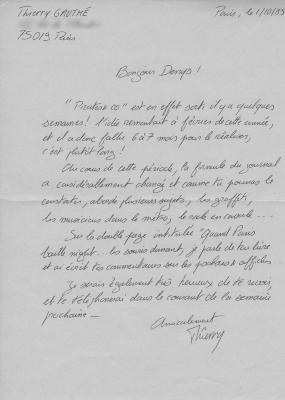 Thierry GAUTHÉ
75019 Paris
Paris, le 1/10/85
Bonjour Denys !
" est en effet sorti il y a quelques
semaines ! L'idée remontait à février de cette année,
et il a donc fallu 6 à 7 mois pour le réaliser,
c'est plutôt long !
Au cours de cette période, la formule du journal
a considérablement changé et comme tu pourras le
constater, aborde plusieurs sujets, les graffiti,
les musiciens dans le métro, le rock en
Sur la double page intitulée "Quand Paris
night... les souris dansent, je parle de ton livre
et ai écrit les commentaires sur les pochoirs & affiches
Je serais également très heureux de te revoir,
et te téléphonerai dans le courant de la semaine
prochaine —
Amicalement
Thierry